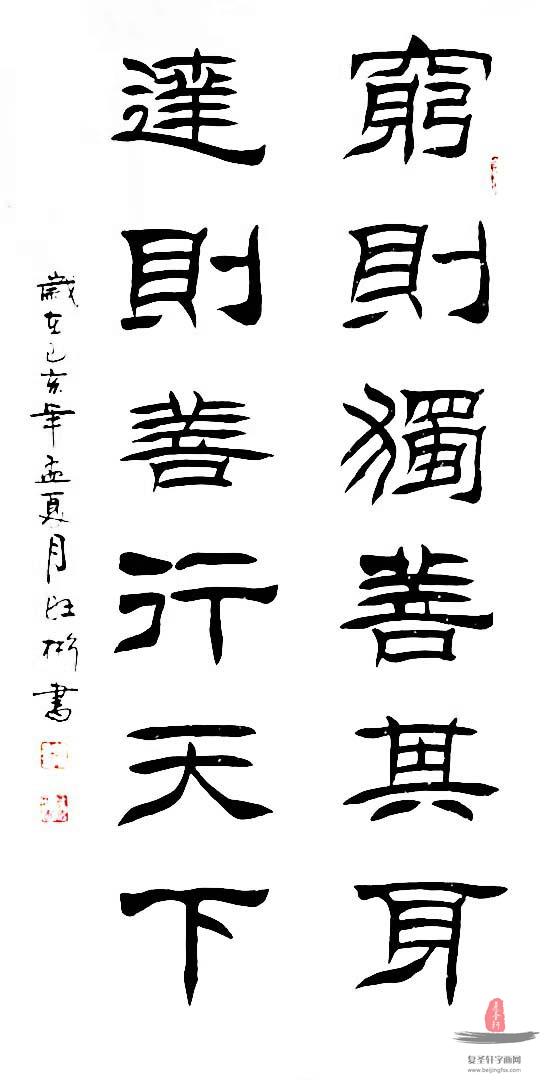 窮則獨善其身
達則善行天下
歲在己亥年孟夏月汪彬書
复圣轩字画网
www.beijingfsx.com